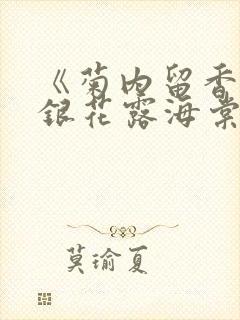 《菊内留香
银花露海棠
莫瑜夏